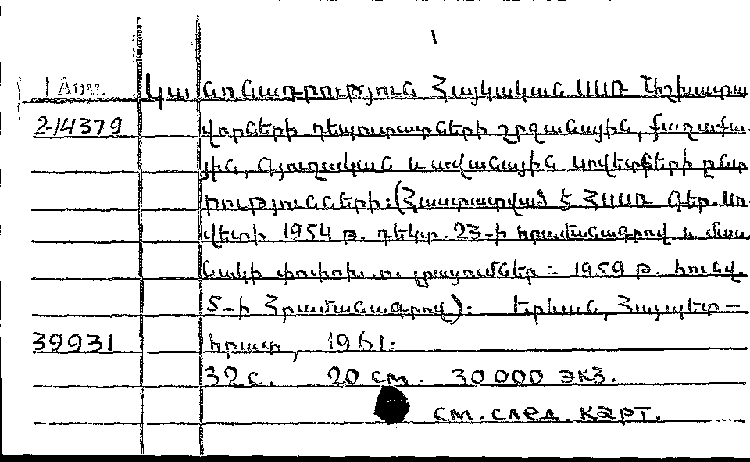 1
Կանոնադրություն Հայկական ՍՍՌ Աշխատա
2-14379 վորների դեպուտատների շրջանային, քաղաքա
յին, գյուղական և ավանային սովետների ընտ
րությունների: (Հաստատված է ՀՍՍՌ Գեր. Սո
վետի 1954 թ. դեկտ. 23-ի հրամանագրով և մաս
նակի փոփոխ. լրացումներ - 1959 թ. հունվ.
5-ի Հրամանագրով): Երևան, Հայպետ-
39931 հրատ, 1961:
32 с. 20 см. 30000 экз.
см. след. карт.